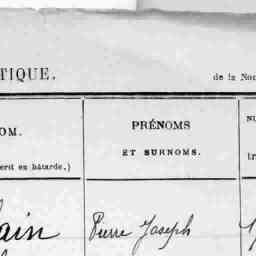 TIQUE. de la No
OM. PRÉNOMS
ET SURNOMS.
crit en bâtarde.)
ain Pierre Joseph